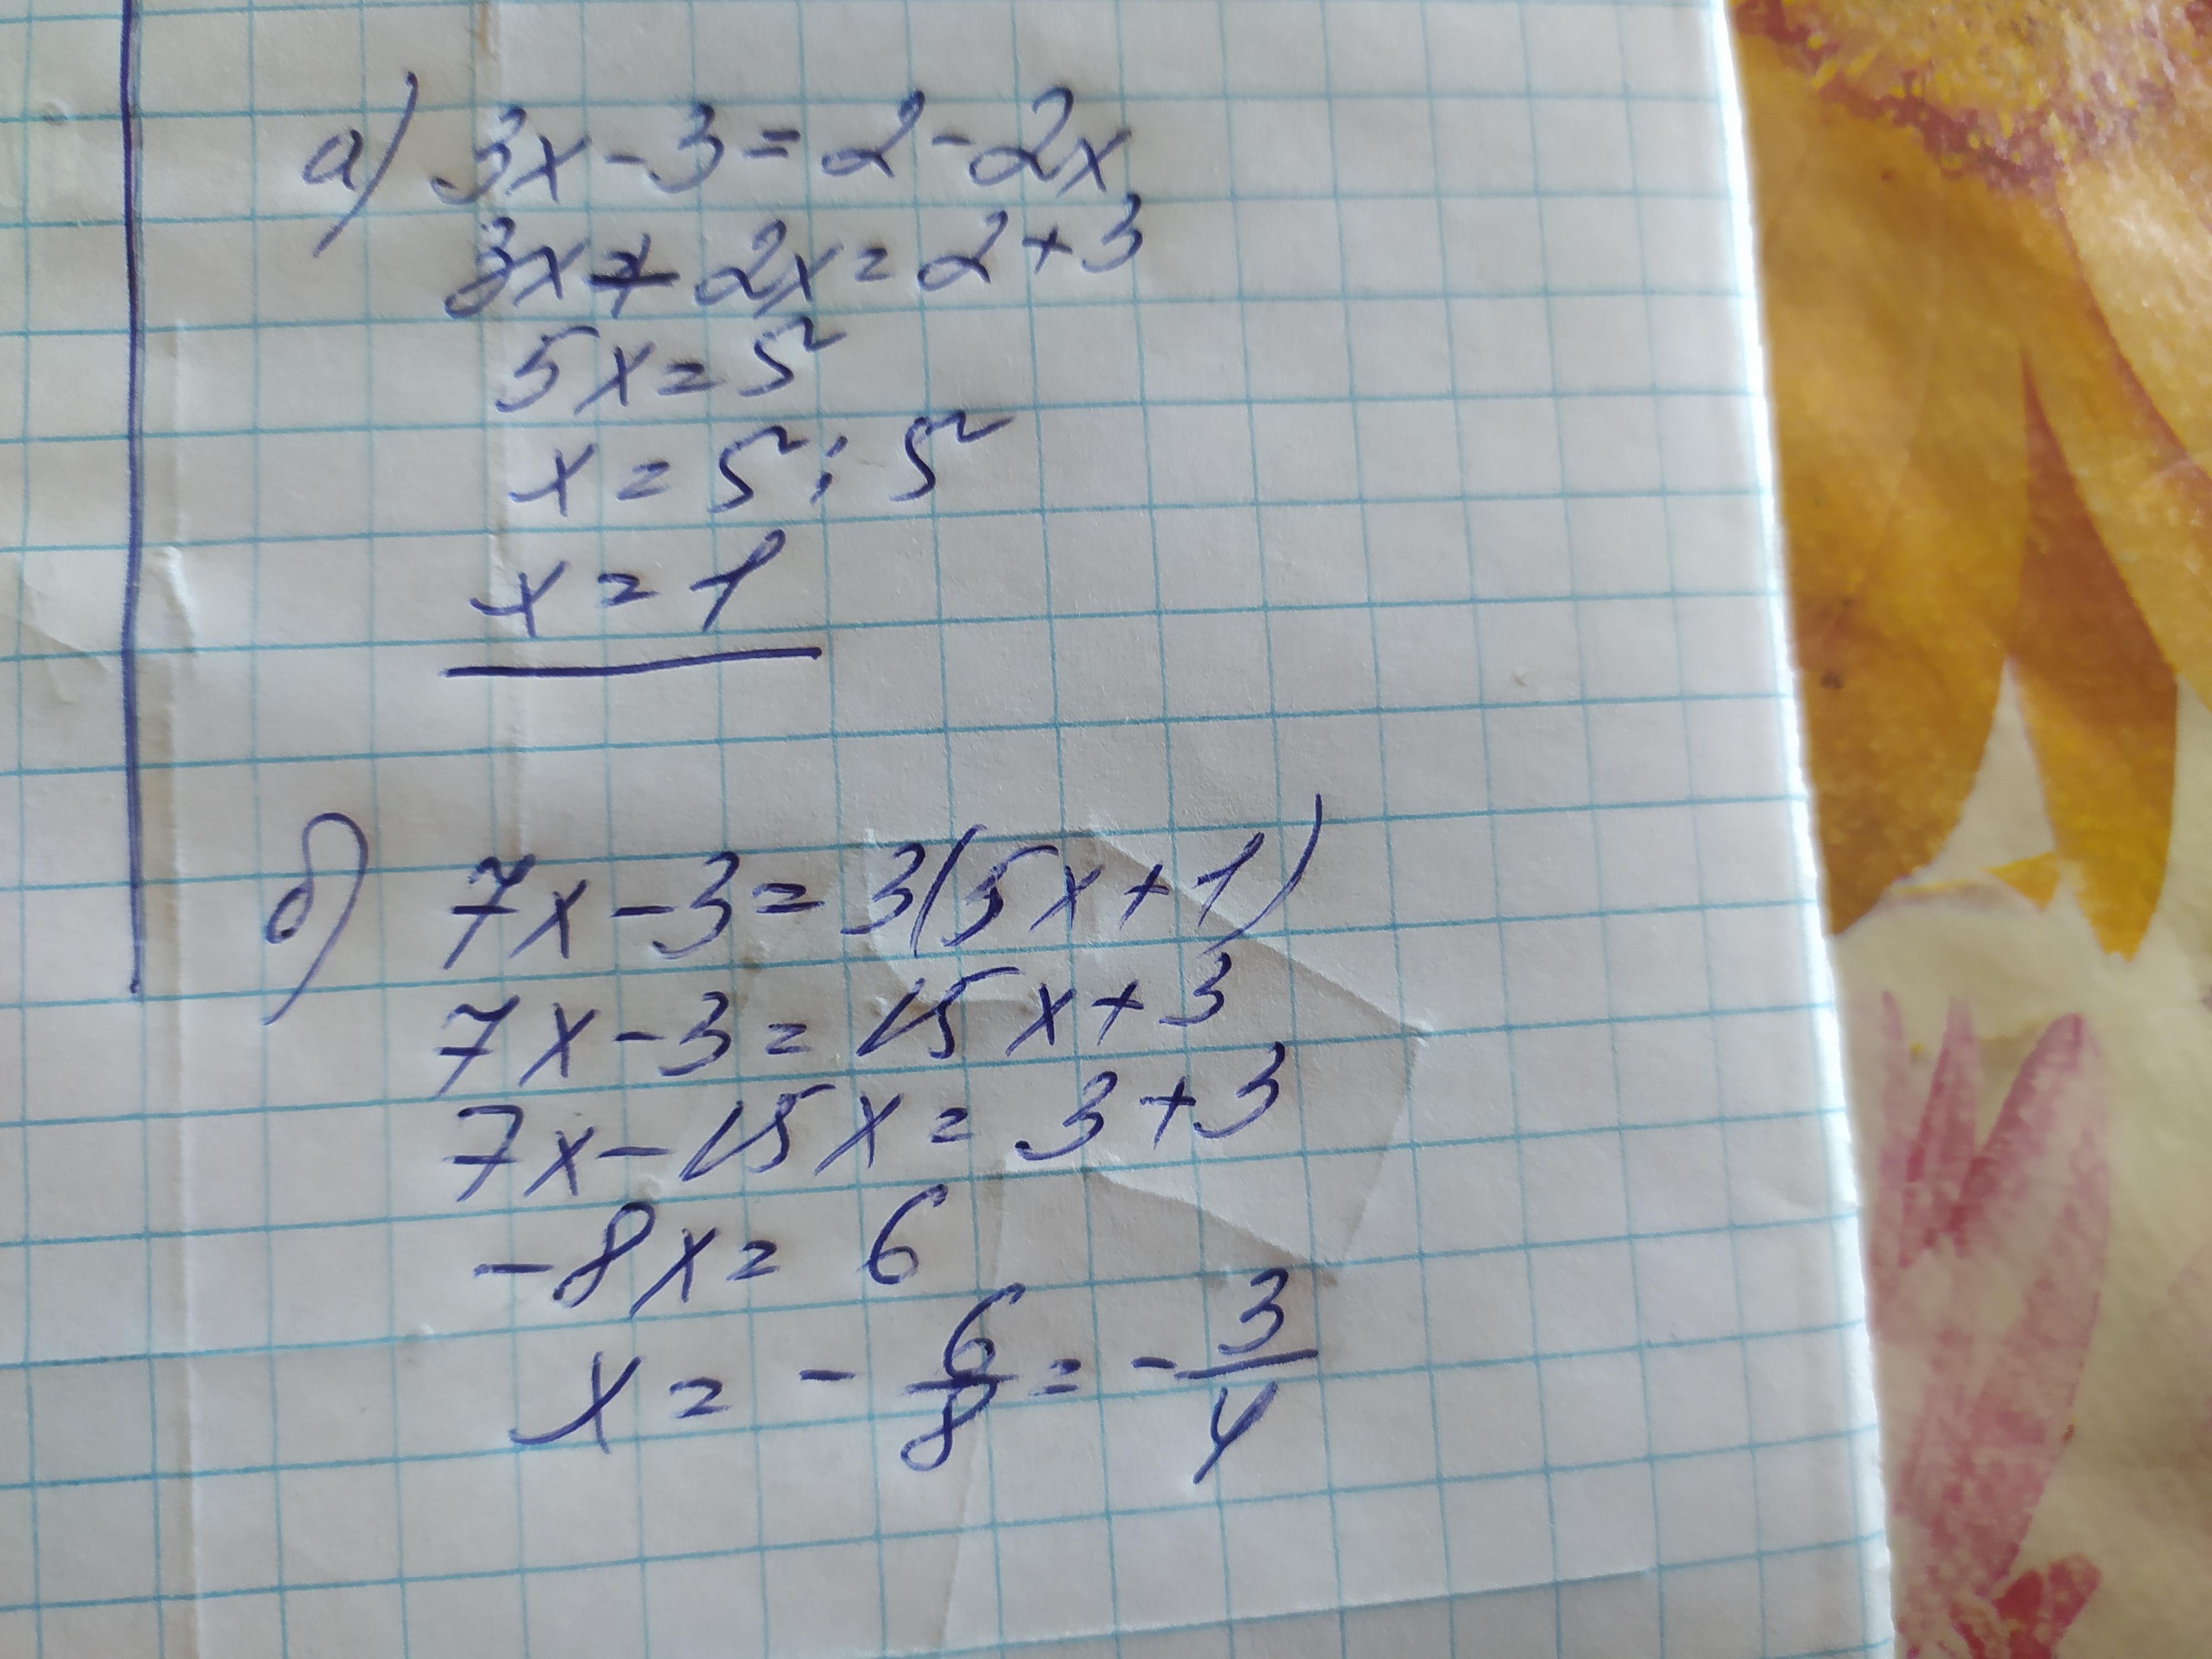 а) 3x - 3 = 2 - 2x
3x + 2x = 2 + 3
5x = 5
x = 5 : 5
x = 1
б) 7x - 3 = 3(5x + 1)
7x - 3 = 15x + 3
7x - 15x = 3 + 3
-8x = 6
x = - 6/8 = - 3/4